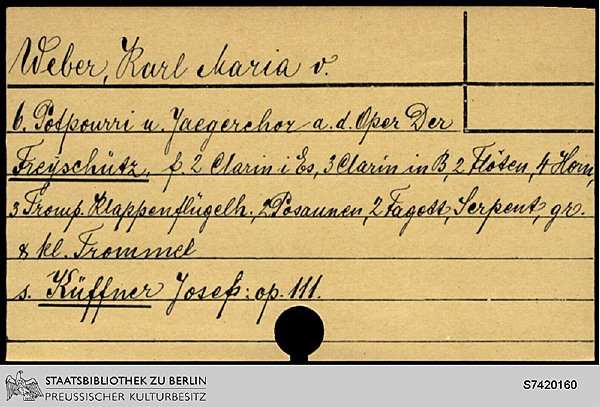 Weber, Karl Maria v.
6. Potpourri u. Jaegerchor a. d. Oper Der
Freyschütz, f. 2 Clarin i Es, 3 Clarin in B, 2 Flöten, 4 Horn,
3 Tromp. Klappenflügelh., 2 Posaunen, 2 Fagott, Serpent, gr.
& kl. Trommel
s. Küffner Josef: op. 111.
STAATSBIBLIOTHEK ZU BERLIN
PREUSSISCHER KULTURBESITZ
S7420160